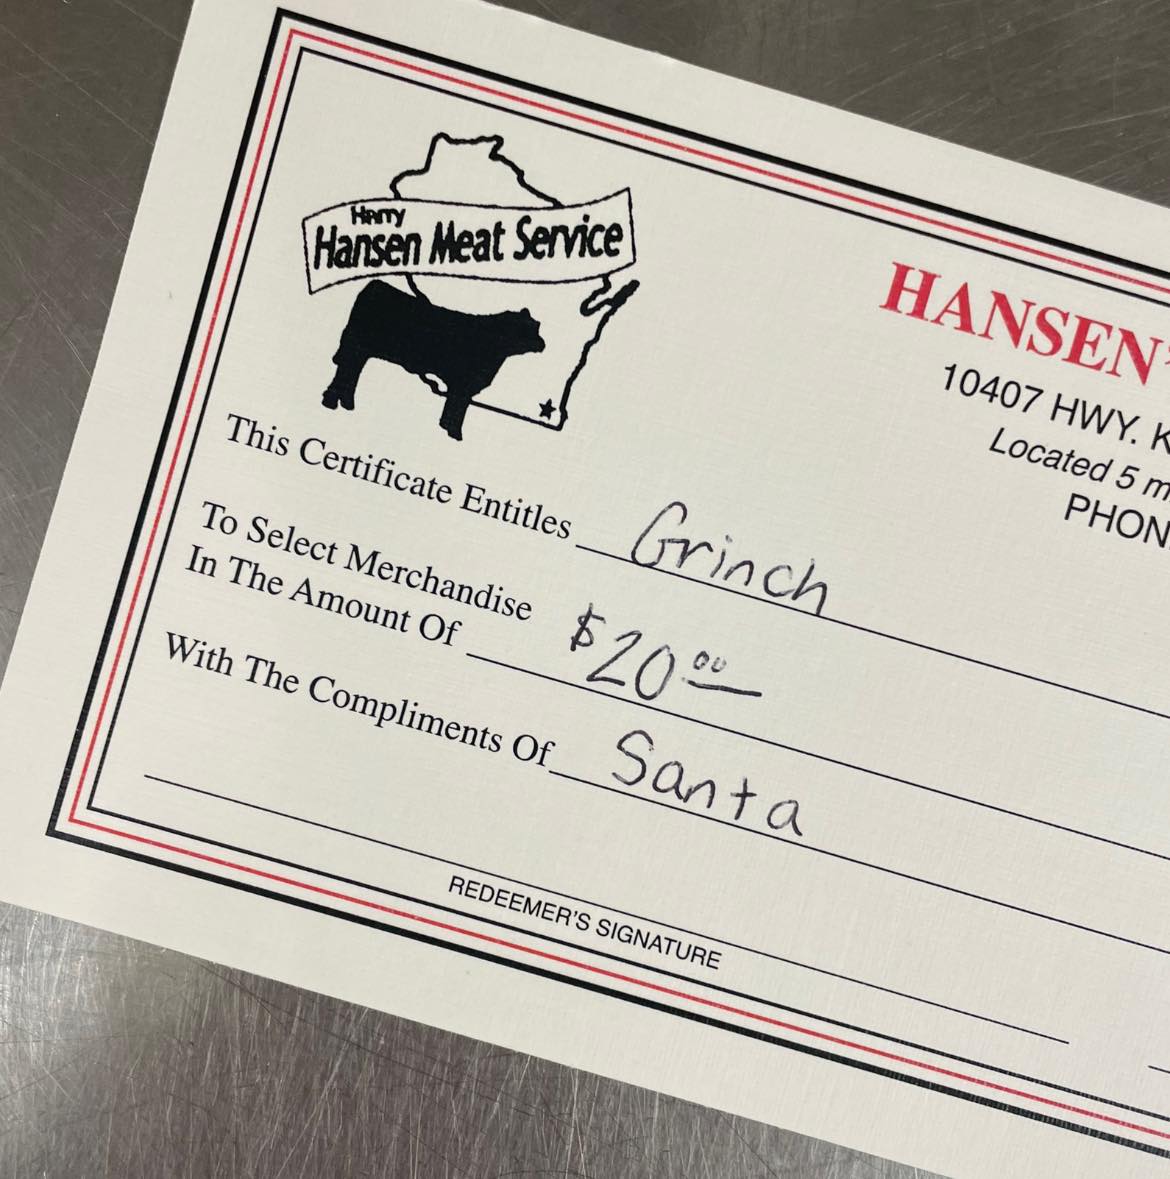 Harry
Hansen Meat Service
HANSEN'
10407 HWY. K
Located 5 m
PHON
This Certificate Entitles Grinch
To Select Merchandise
In The Amount Of $20.00
With The Compliments Of Santa
REDEEMER'S SIGNATURE